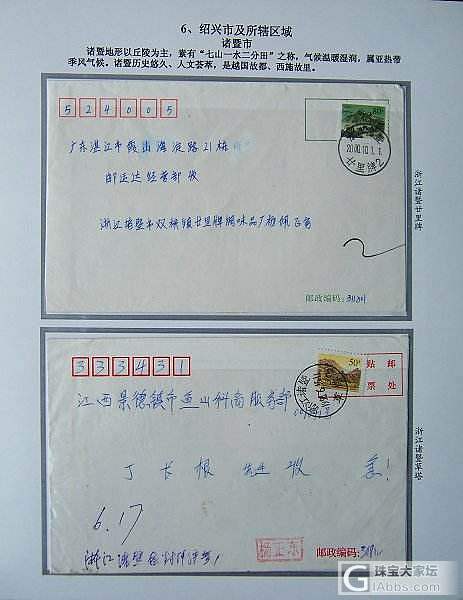 6、绍兴市及所辖区域
诸暨市
诸暨地形以丘陵为主，素有“七山一水二分田”之称，气候温暖湿润，属亚热带
季风气候。诸暨历史悠久、人文荟萃，是越国故都、西施故里。
524005
80分
2000.10.1.1
广东湛江市霞山海淀路21栋
邮正达经营部 收
浙江诸暨市双桥镇廿里牌调味品厂杨佩飞寄
邮政编码：
浙江诸暨廿里牌
333431
50分
贴 邮
票 处
浙江诸暨
江西景德镇市鱼山科商服务部
丁长根 先生 收
6.17
浙江诸暨
杨正东
邮政编码
浙江诸暨草塔
珠宝大家坊